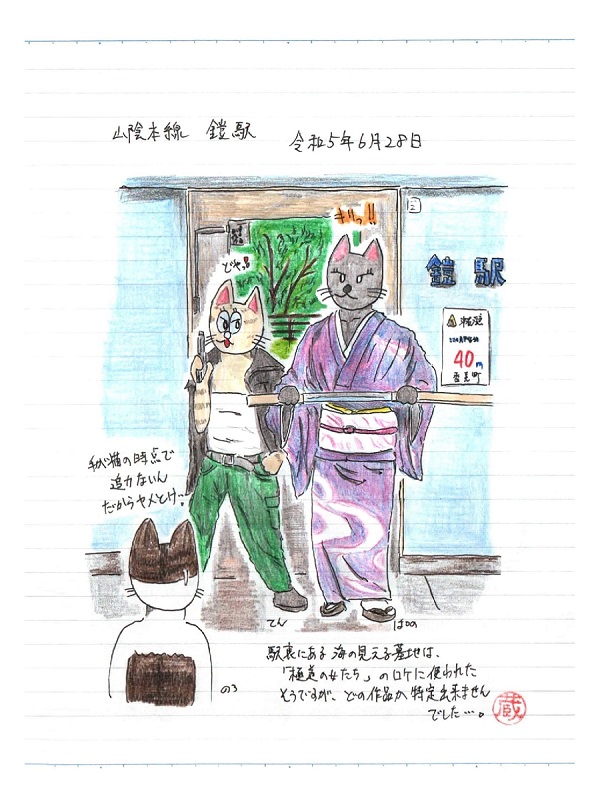 山陰本線 鎧駅
令和5年6月28日
キリッ!!
どやっ!!
鎧駅
40m
香美町
私ら猫の時点で
迫力ないん
だからヤメとけ…
てん
はのの
のう
駅裏にある海の見える墓地は、
「極道の女たち」のロケに使われた
そうですが、どの作品か特定出来ません
でした…。
蔵